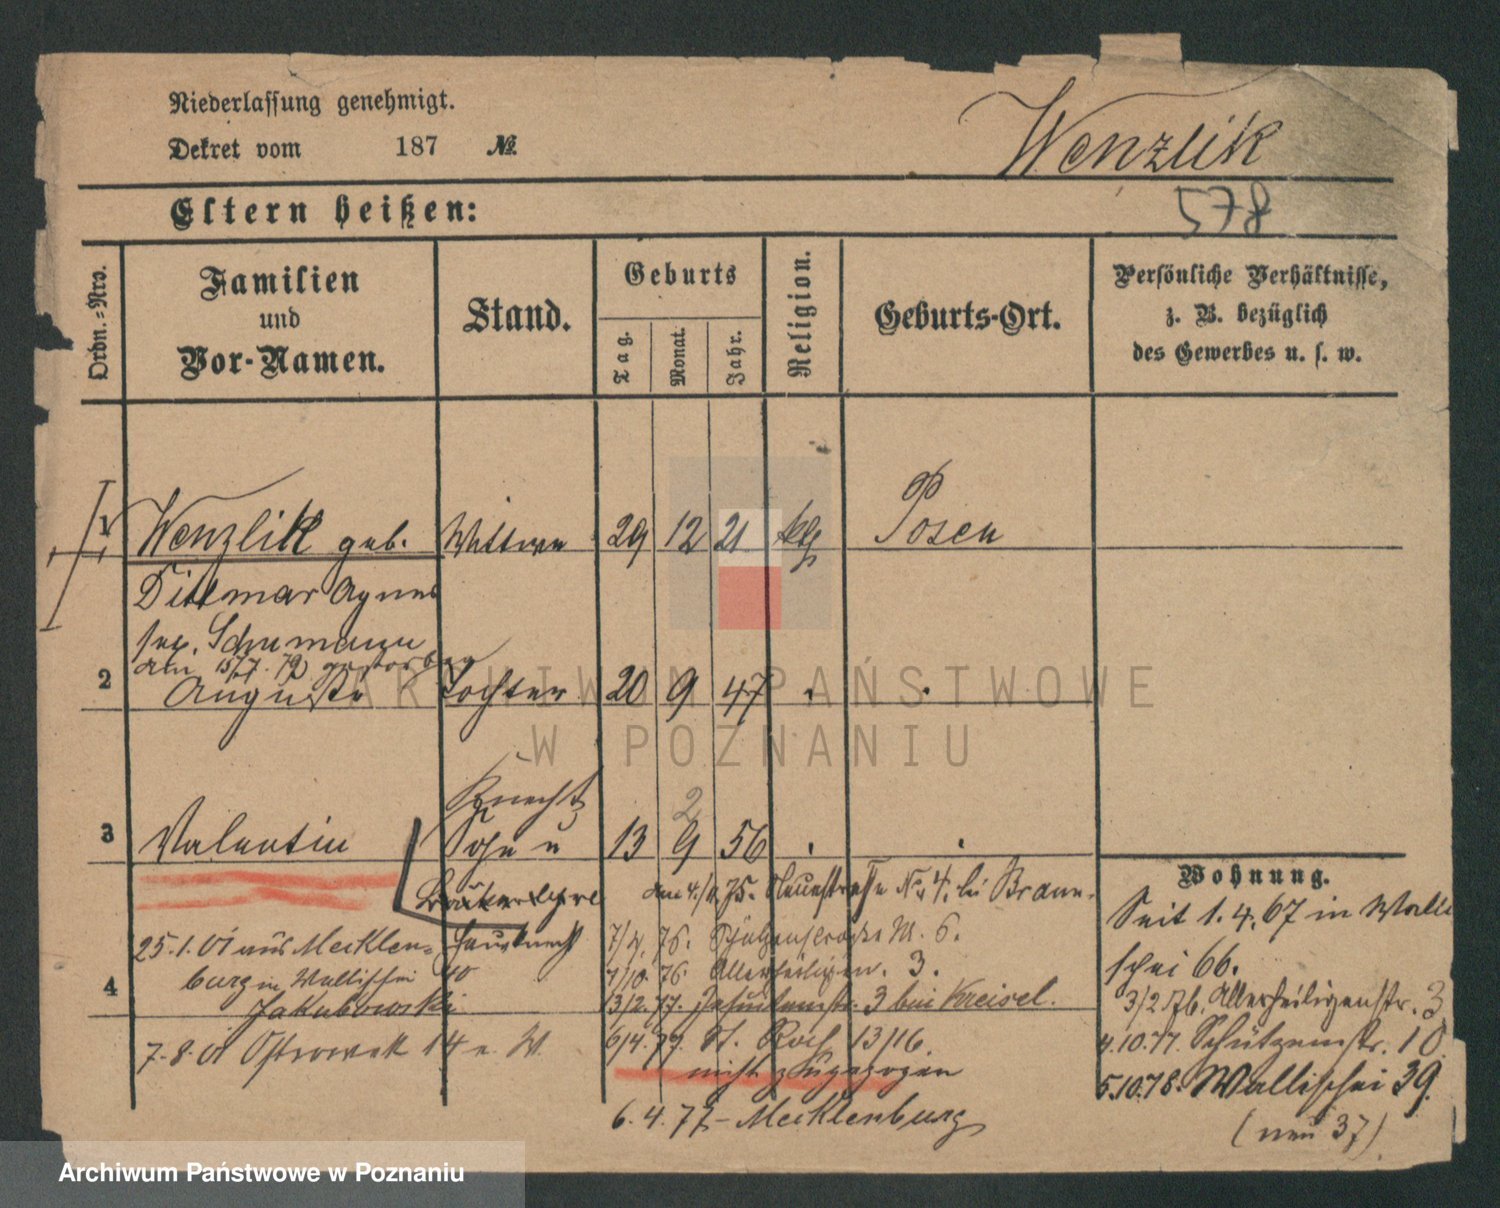 Niederlassung genehmigt.
Dekret vom 187 №
Wenzlik
578
Eltern heißen:
Ordn.-Nro.
Familien
und
Vor-Namen.
Stand.
Geburts
Tag.
Monat.
Jahr.
Religion.
Geburts-Ort.
Persönliche Verhältnisse,
z. B. bezüglich
des Gewerbes u. s. w.
1 Wenzlik geb. Wittwe 29 12 21 klg Posen
Dittmar Agnes
Schumann
am 15/7. 79 gestorben
2 Auguste Tochter 20 9 47 . .
Knecht
2
3 Valentin Sohn u 13 9 56 . .
Wohnung.
den 75. Neuestraße No. 4. bei Braun.
Seit 1.4.67 in Walli
schei 66.
25.1.01 aus Mecklen= Hausknecht 76. M. 6.
burg in Wallischei 40 7/10. 76. Allerheiligen. 3.
3/2. 76. Allerheiligenstr. 3
4 Jakubowski 13/2. 77. Jesuitenstr. 3 bei Kreisel.
7.8.01 Ostrowek 14 e. W. 6/4. 77. St. Roch 13/16.
4.10.77. Schützenstr. 10
nicht zugezogen
5.10.78. Wallischei 39.
6.4.77 - Mecklenburg
(neu 37)
ARCHIWUM PAŃSTWOWE
W POZNANIU
Archiwum Państwowe w Poznaniu